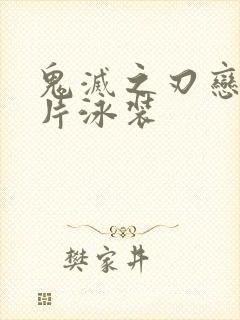 鬼滅之刃戀
片泳裝
樊家井